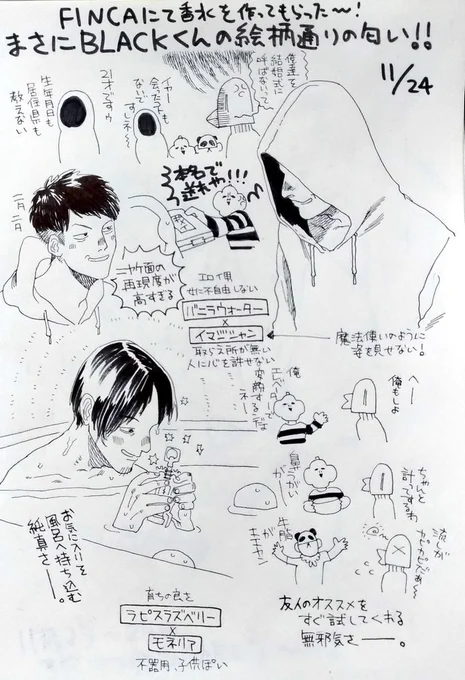 FINCAにて香水を作ってもらった〜!
まさにBLACKくんの絵柄通りの匂い!!
11/24
俺達を
結婚式に
呼ばないって
イヤー
会ったことも
ないで
すしネ〜
21才ですウ
生年月日も
居住県も
教えない
本名で
送れや!!!
二月二日
ニヤケ面の
再現度が
高すぎる
エロイ男
女に不自由しない
バニラウォーター
×
イマジジャン
取らえ所が無い
人に心を許せない
魔法使いのように
姿を見せない!
俺
エレベーターでは
変顔するだよ
ネー
へー
俺もしよ
鼻うがい
が
ちゃんと
計ってるわ
牛脂
が
ええヤン
お気に入りを
風呂へ持ち込む
純真さ―。
友人のオススメを
すぐ試してくれる
無邪気さ―。
育ちの良さ
ラピスラズベリー
×
モネリア
不器用、子供ぽい